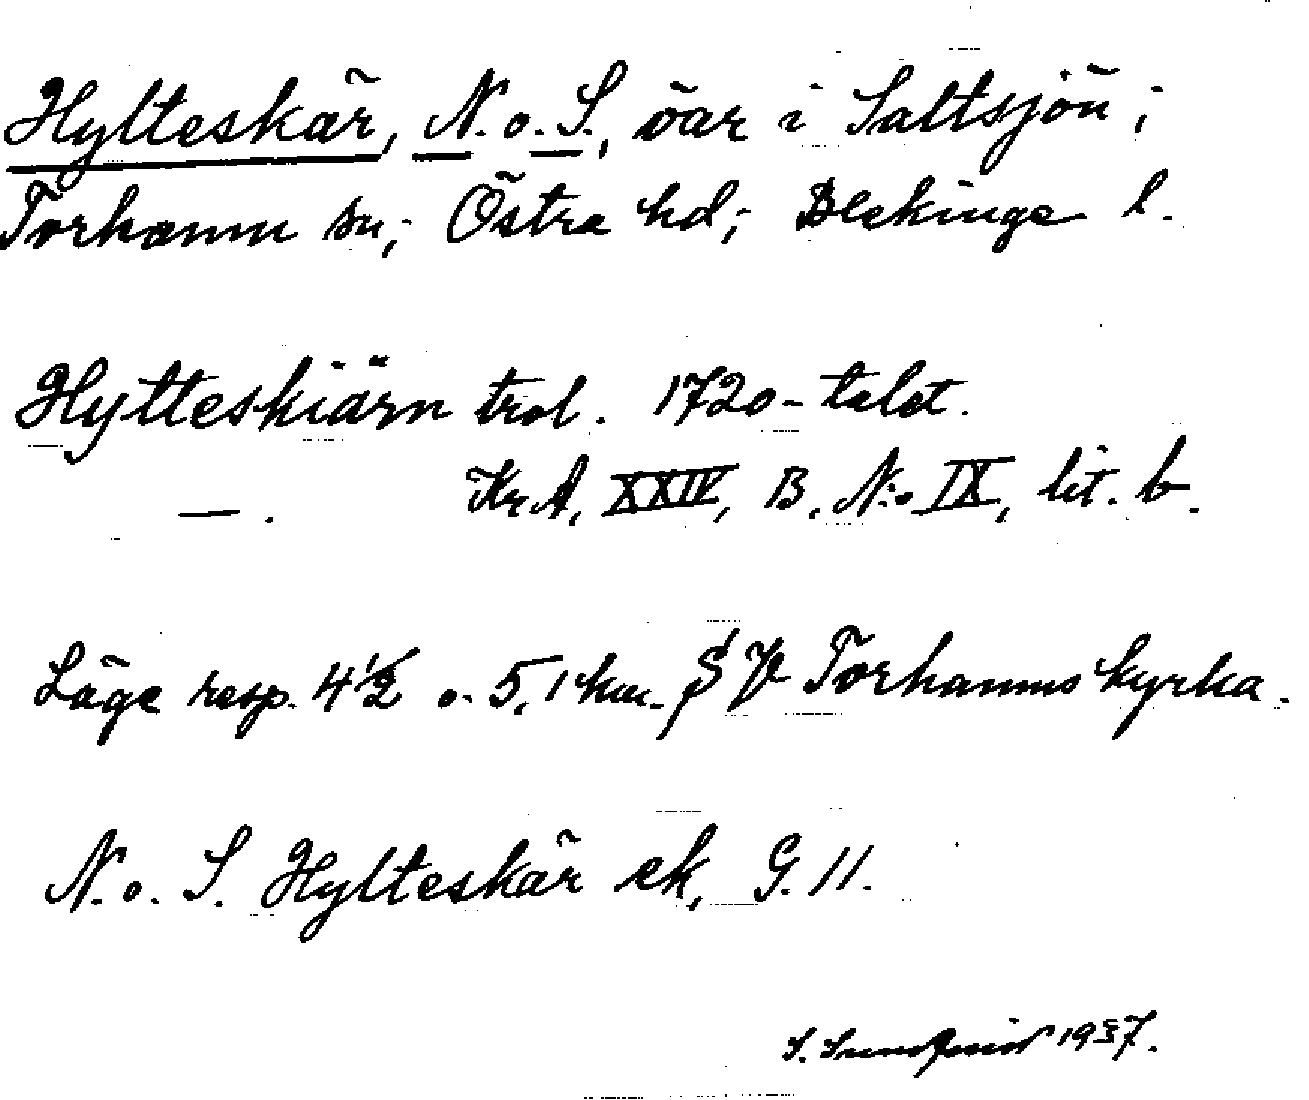 Hylteskär, N. o. S., öar i Saltsjön;
Torhamn sn; Östra hd; Blekinge l.
Hytteskiärn trol. 1720-talet.
—. KrA, XXIV, B. N:o IX, lit. b.
Läge resp. 4½ o. 5,1 km. SV Torhamns kyrka.
N. o. S. Hylteskär ek, G. 11.
S. Sundqvist 1937.